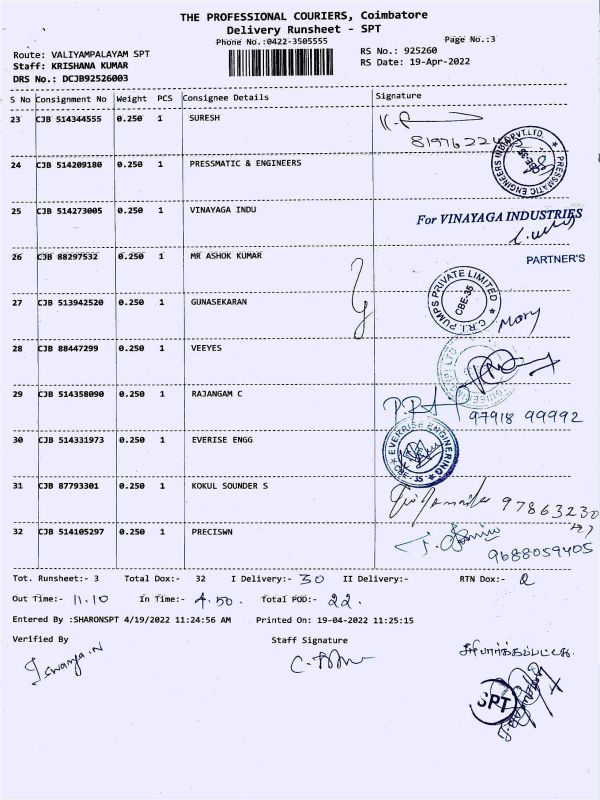 THE PROFESSIONAL COURIERS, Coimbatore
Delivery Runsheet - SPT
Phone No.:0422-3505555
Page No.:3
Route: VALIYAMPALAYAM SPT
RS No.: 925260
Staff: KRISHANA KUMAR
RS Date: 19-Apr-2022
DRS No.: DCJB92526003
S No Consignment No Weight PCS Consignee Details Signature
23 CJB 514344555 0.250 1 SURESH
24 CJB 514209180 0.250 1 PRESSMATIC & ENGINEERS
25 CJB 514273005 0.250 1 VINAYAGA INDU
For VINAYAGA INDUSTRIES
PARTNER'S
26 CJB 88297532 0.250 1 MR ASHOK KUMAR
C.R.I. PUMPS PRIVATE LIMITED
CBE-35
27 CJB 513942520 0.250 1 GUNASEKARAN
Mary
28 CJB 88447299 0.250 1 VEEYES
29 CJB 514358090 0.250 1 RAJANGAM C
97918 99992
30 CJB 514331973 0.250 1 EVERISE ENGG
EVERRISE ENGINEERING
CBE - 35
31 CJB 87793301 0.250 1 KOKUL SOUNDER S
97863230
32 CJB 514105297 0.250 1 PRECISWN
9688059405
Tot. Runsheet:- 3 Total Dox:- 32 I Delivery:- 30 II Delivery:- RTN Dox:- 2
Out Time:- 11.10 In Time:- 4.50. Total POD:- 22.
Entered By :SHARONSPT 4/19/2022 11:24:56 AM Printed On: 19-04-2022 11:25:15
Verified By Staff Signature
சரிபார்க்கப்பட்டது
SPT